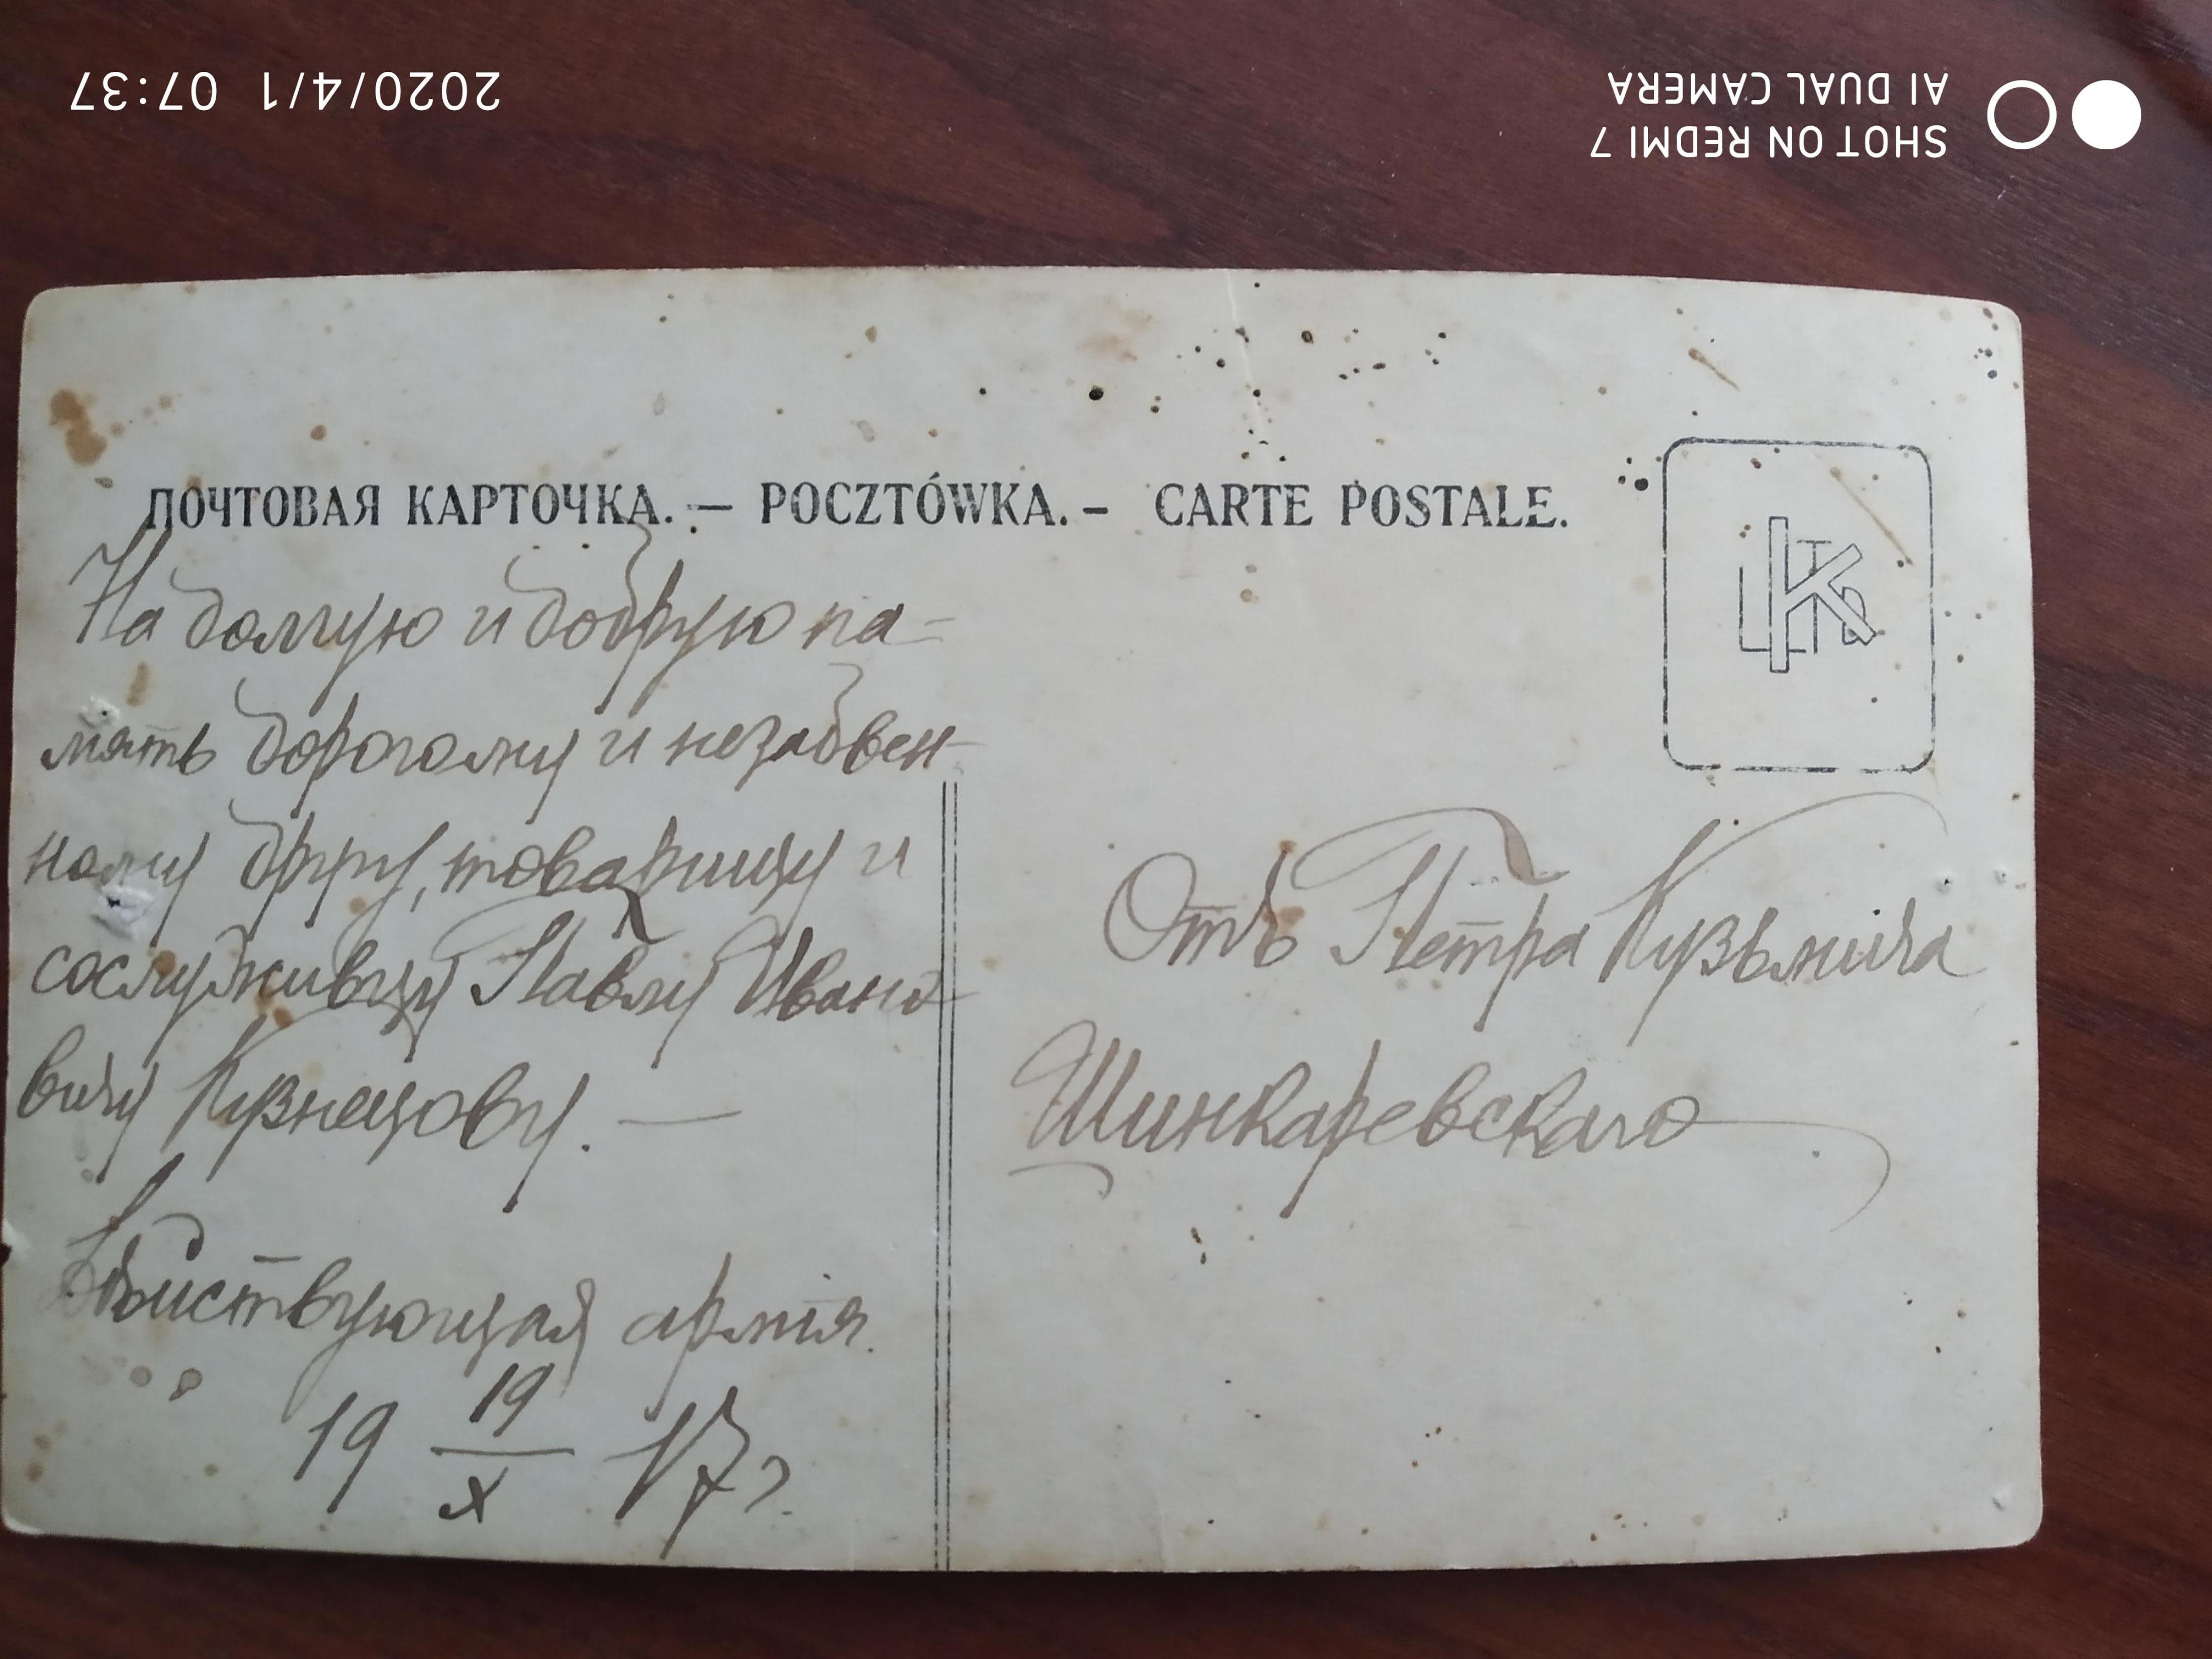 2020/4/1 07:37
SHOT ON REDMI 7
AI DUAL CAMERA
ПОЧТОВАЯ КАРТОЧКА. — POCZTÓWKA. – CARTE POSTALE.
На долгую и добрую па-
мять дорогому и незабвен-
ному другу, товарищу и
сослуживцу Павлу Ивано-
вичу Кузнецову. —
Действующая армія.
19 19/X 17 г.
Отъ Петра Кузьмича
Шинкаревскаго